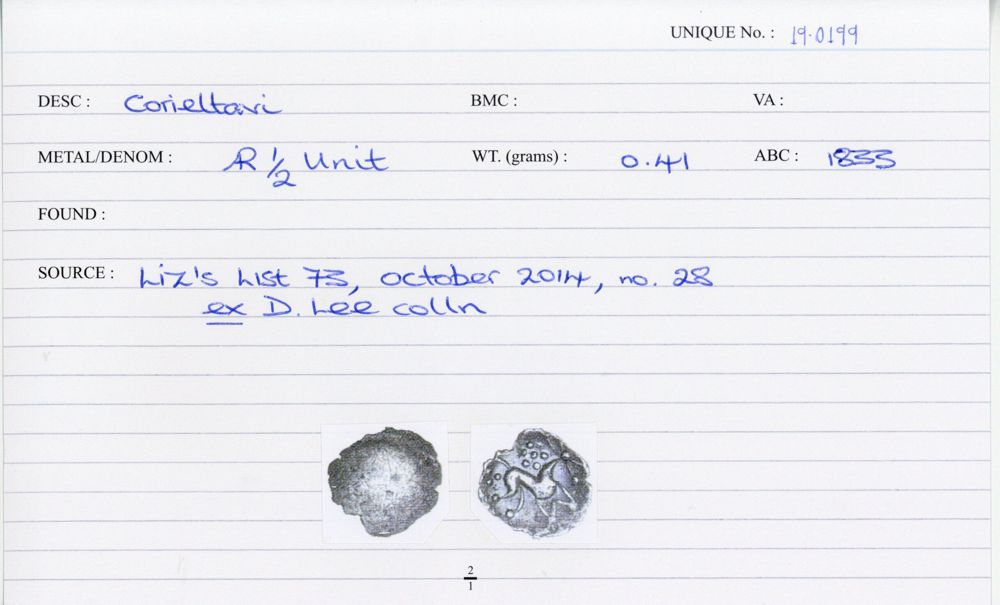 UNIQUE No. : 19.0199
DESC : Corieltavi BMC : VA :
METAL/DENOM : AR 1/2 Unit WT. (grams) : 0.41 ABC : 1833
FOUND :
SOURCE : Liz's List 73, October 2014, no. 28
ex D. Lee colln
2
1